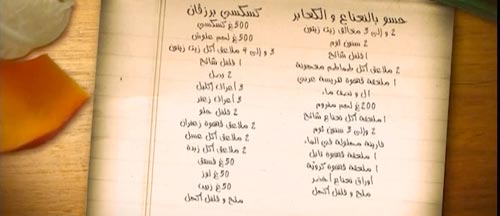 حسو بالنعناع و الكعابر
2 و إلى 3 معالق زيت زيتون
2 سنون ثوم
1 فلفل شائح
2 ملاعق أكل طماطم معجونة
1 ملعقة قهوة هريسة عربي
1ل و نصف ماء
200 غ لحم مفروم
1 ملعقة أكل نعناع شائح
2 وإلى 3 سنون ثوم
فارينة محلولة في الماء
1 ملعقة قهوة تابل
1 ملعقة قهوة كروية
أوراق نعناع أخضر
ملح و فلفل أكحل
كسكسي برزقان
500 غ كسكسي
500 غ لحم علوش
3 و إلى 4 ملاعق أكل زيت زيتون
1 فلفل شائح
2 بصل
3 أعراف إكليل
3 أعراف زعتر
2 فلفل حلو
2 ملاعق قهوة زعفران
2 ملاعق أكل عسل
2 ملاعق أكل زبدة
50 غ فستق
50 غ لوز
50 غ زبيب
ملح و فلفل أكحل